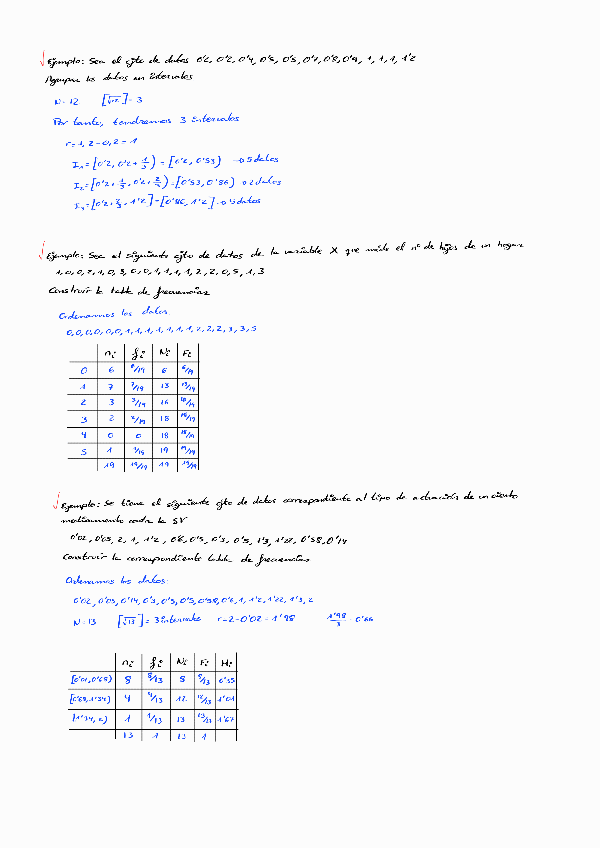 Ejemplo: Sea el cjto de datos 0'2, 0'2, 0'4, 0'5, 0'5, 0'7, 0'8, 0'9, 1, 1, 1, 1'2
Agrupar los datos en intervalos
N=12 [√12]=3
Por tanto, tendremos 3 intervalos
r=1,2-0,2=1
I1=[0'2, 0'2+1/3)=[0'2, 0'53) → 5 datos
I2=[0'2+1/3, 0'2+2/3)=[0'53, 0'86) → 2 datos
I3=[0'2+2/3, 1'2]=[0'86, 1'2] → 5 datos
Ejemplo: Sea el siguiente cjto de datos de la variable X que mide el nº de hijos de un hogar
1,0,0,2,1,0,3,0,0,1,1,1,1,2,2,0,5,1,3
Construir la tabla de frecuencias
Ordenamos los datos
0,0,0,0,0,0,1,1,1,1,1,1,1,2,2,2,3,3,5
ni fi Ni Fi
0 6 6/19 6 6/19
1 7 7/19 13 13/19
2 3 3/19 16 16/19
3 2 2/19 18 18/19
4 0 0 18 18/19
5 1 1/19 19 19/19
19 19/19 19 19/19
Ejemplo: Se tiene el siguiente cjto de datos correspondiente al tipo de actuación de un cierto
medicamento contra la SV
0'02, 0'05, 2, 1, 1'2, 0'6, 0'5, 0'3, 0'5, 1'3, 1'22, 0'58, 0'14
Construir la correspondiente tabla de frecuencias
Ordenamos los datos:
0'02, 0'05, 0'14, 0'3, 0'5, 0'5, 0'58, 0'6, 1, 1'2, 1'22, 1'3, 2
N=13 [√13]=3 intervalos r=2-0'02=1'98 1'98/3=0'66
ni fi Ni Fi Mi
[0'02, 0'68) 8 8/13 8 8/13 0'35
[0'68, 1'34) 4 4/13 12 12/13 1'01
[1'34, 2] 1 1/13 13 13/13 1'67
13 1 13 1